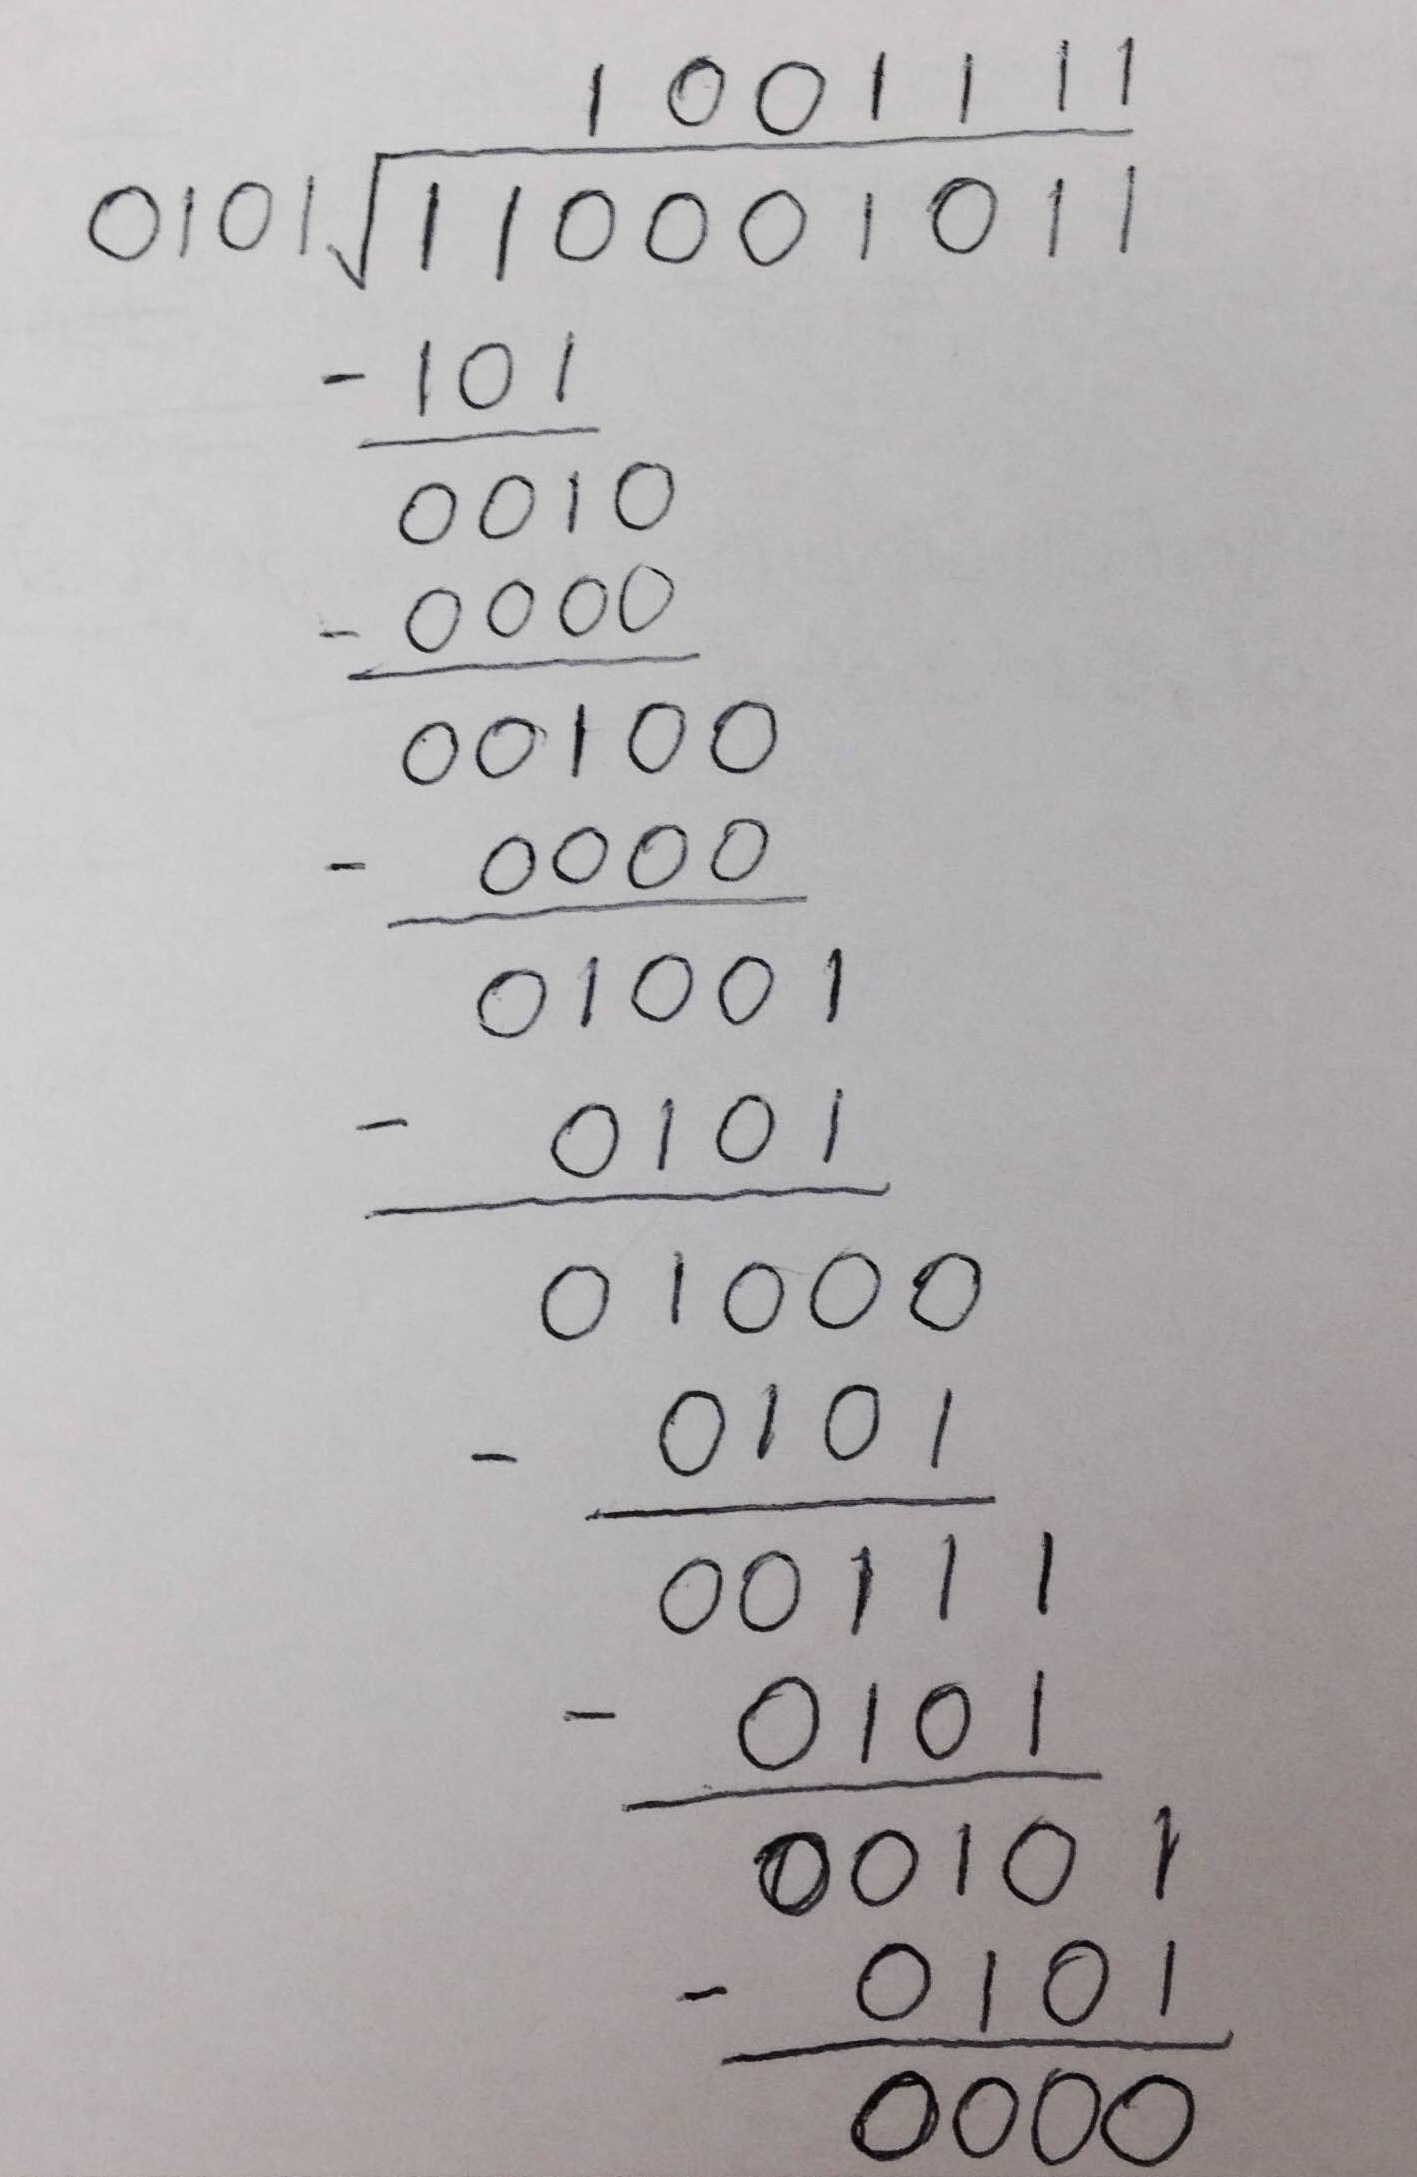 1001111
0101√110001011
-101
0010
-0000
00100
-0000
01001
-0101
01000
-0101
00111
-0101
00101
-0101
0000